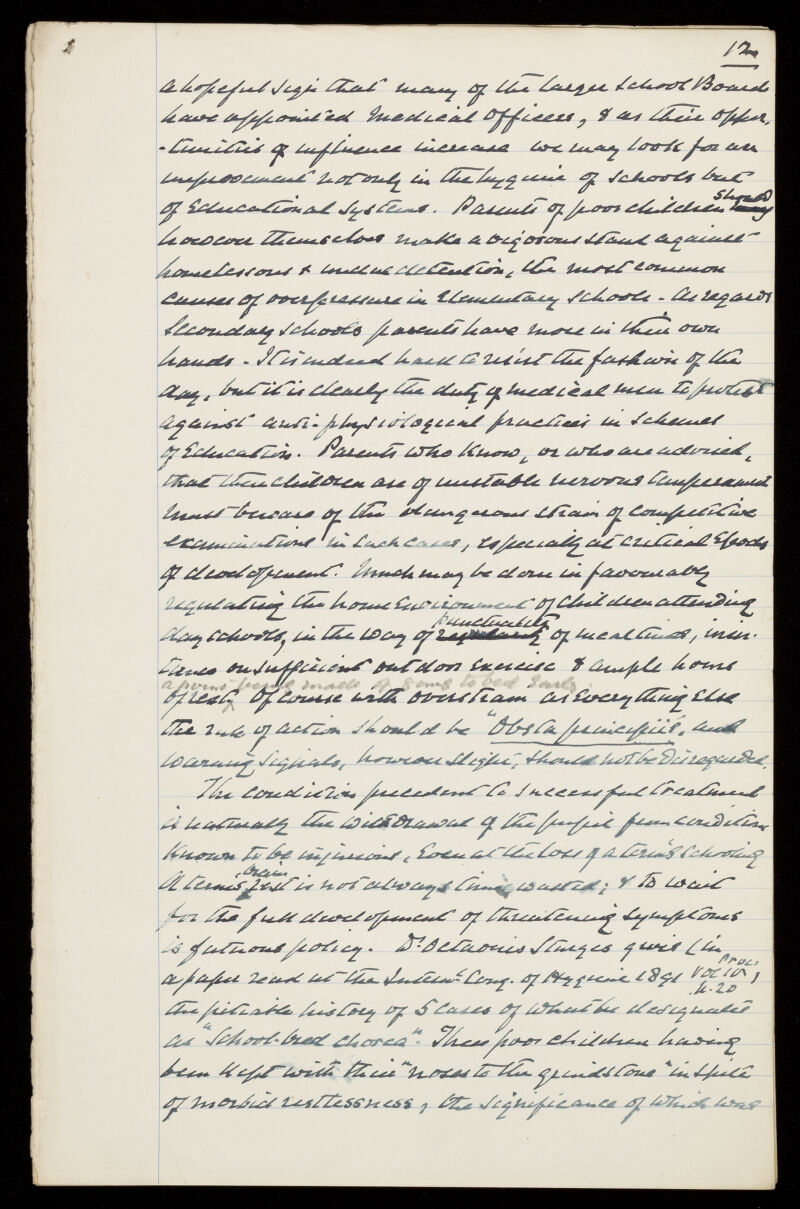 12
a hopeful sign that many of the larger School Boards
have appointed Medical Officers, & as their oppor-
-tunities of influence increase we may look for an
improvement not only in the hygiene of schools but
of Educational systems. Parents of poor children should
however themselves make a vigorous stand against
homelessons & undue detention, the most common
causes of overpressure in Elementary Schools - As regards
Secondary Schools parents have more in their own
hands - It is indeed hard to resist the fashion of the
day, but it is clearly the duty of medical men to protest
against anti-physiological practices in schemes
of Education. Parents who know, or who are advised,
that their children are of unstable nervous temperament
must beware of the dangerous strain of competitive
examinations in such cases, especially at critical Epochs
of development. Much may be done in favourably
regulating the home Environment of children attending
day schools, in the way of regularity punctuality of meal times, insis-
tance on sufficient outdoor exercise & ample hours
a point being made of going to bed early.
of rest. Of course with overstrain as Everything Else
the rule of action should be "Obsta principiis", and
warning signals, however slight, should not be disregarded.
The condition precedent to successful treatment
is naturally the withdrawal of the pupil from conditions
known to be injurious, Even at the loss of a term's schooling
A term's brain rest is not always time wasted; & to wait
for the full development of threatening symptoms
is futuous policy. Dr Octavius Sturges gives (in
a paper read at the Internl. Cong. of Hygiene 1891 Proc: Vol IV p. 20)
the pitiable history of 5 cases of what he designates
as "School-bred chorea". These poor children having
been kept with their "noses to the grindstone" in spite
of morbid restlessness, the significance of which was